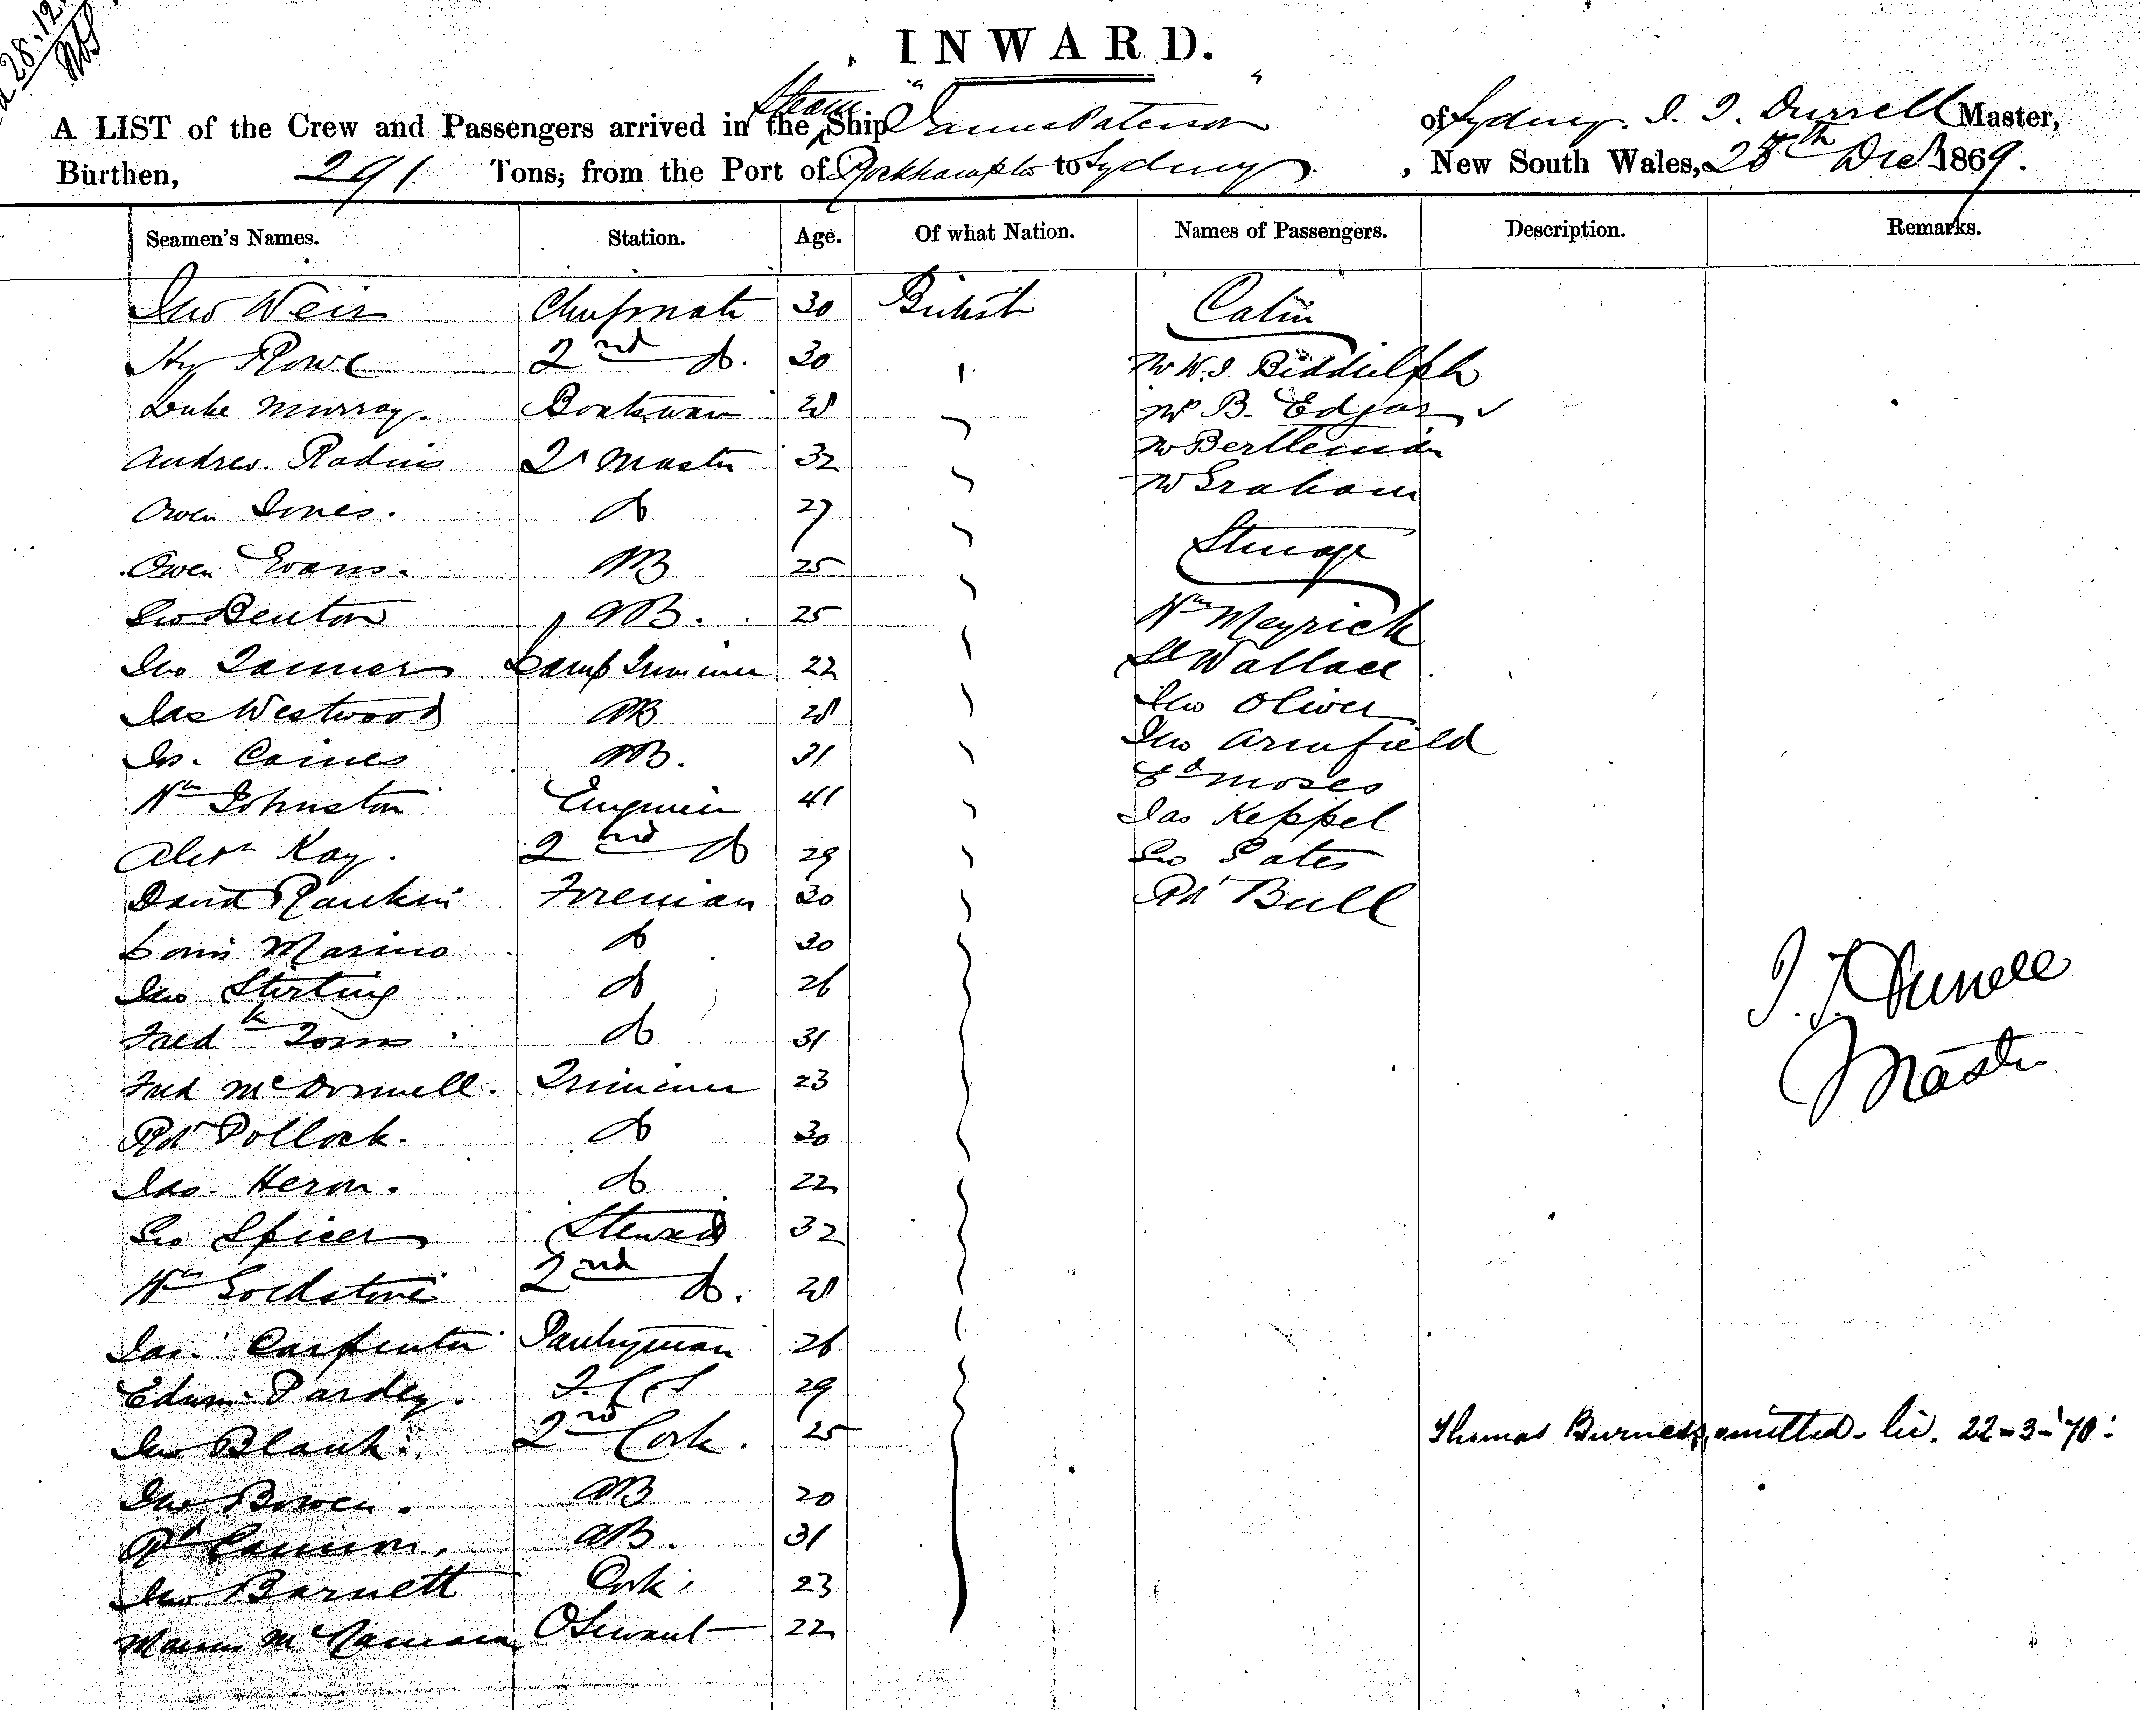 28.12
INWARD.
A LIST of the Crew and Passengers arrived in the Steam Ship "James Paterson" of Sydney. I. T. Durrell Master,
Burthen, 291 Tons, from the Port of Rockhampton to Sydney, New South Wales, 28th Decr 1869.
Seamen's Names. Station. Age. Of what Nation. Names of Passengers. Description. Remarks.
Jno Weir Chief mate 30 British Cabin
Hy Rowe 2nd do. 30 Mr W. J. Biddulph
Luke Murray. Boatswain 28 Mr B. Edgar
Andrew Rodins Qr Master 32 Mr Bertleman
Mr Graham
Owen Jones. do 27
Steerage
Owen Evans. AB 25
Geo Benton AB. 25 Wm Meyrick
Jno Tanner Lamp Trimmer 22 Wallace
Jas Westwood AB 28 Jno Oliver
Jno Armfield
Js. Caines AB. 31
Ed Moses
Wm Johnston Engineer 41 Jas Keppel
Alexr Kay. 2nd do 29 Geo Pates
David Rankin Fireman 30 Rd Bull
Louis Marino do 30
Jno Stirling do 26
I. T. Durrell
Fredk Toms do 31
Master
Fred McDonnell. Trimmer 23
Rd Pollock. do 30
Jas. Heron. do 22
Geo Spicer Steward 32
Wm Goldstone 2nd do. 28
Jas. Carpenter Pantryman 26
Edwin Pardey. 29
Jno Blank. 2nd Cook. 25 Thomas Burness, omitted. 22-3-'70:
Jno Bowen. AB 20
Rd Cannon. AB. 31
Jno Barnett Cook 23
McNamara O Servant 22